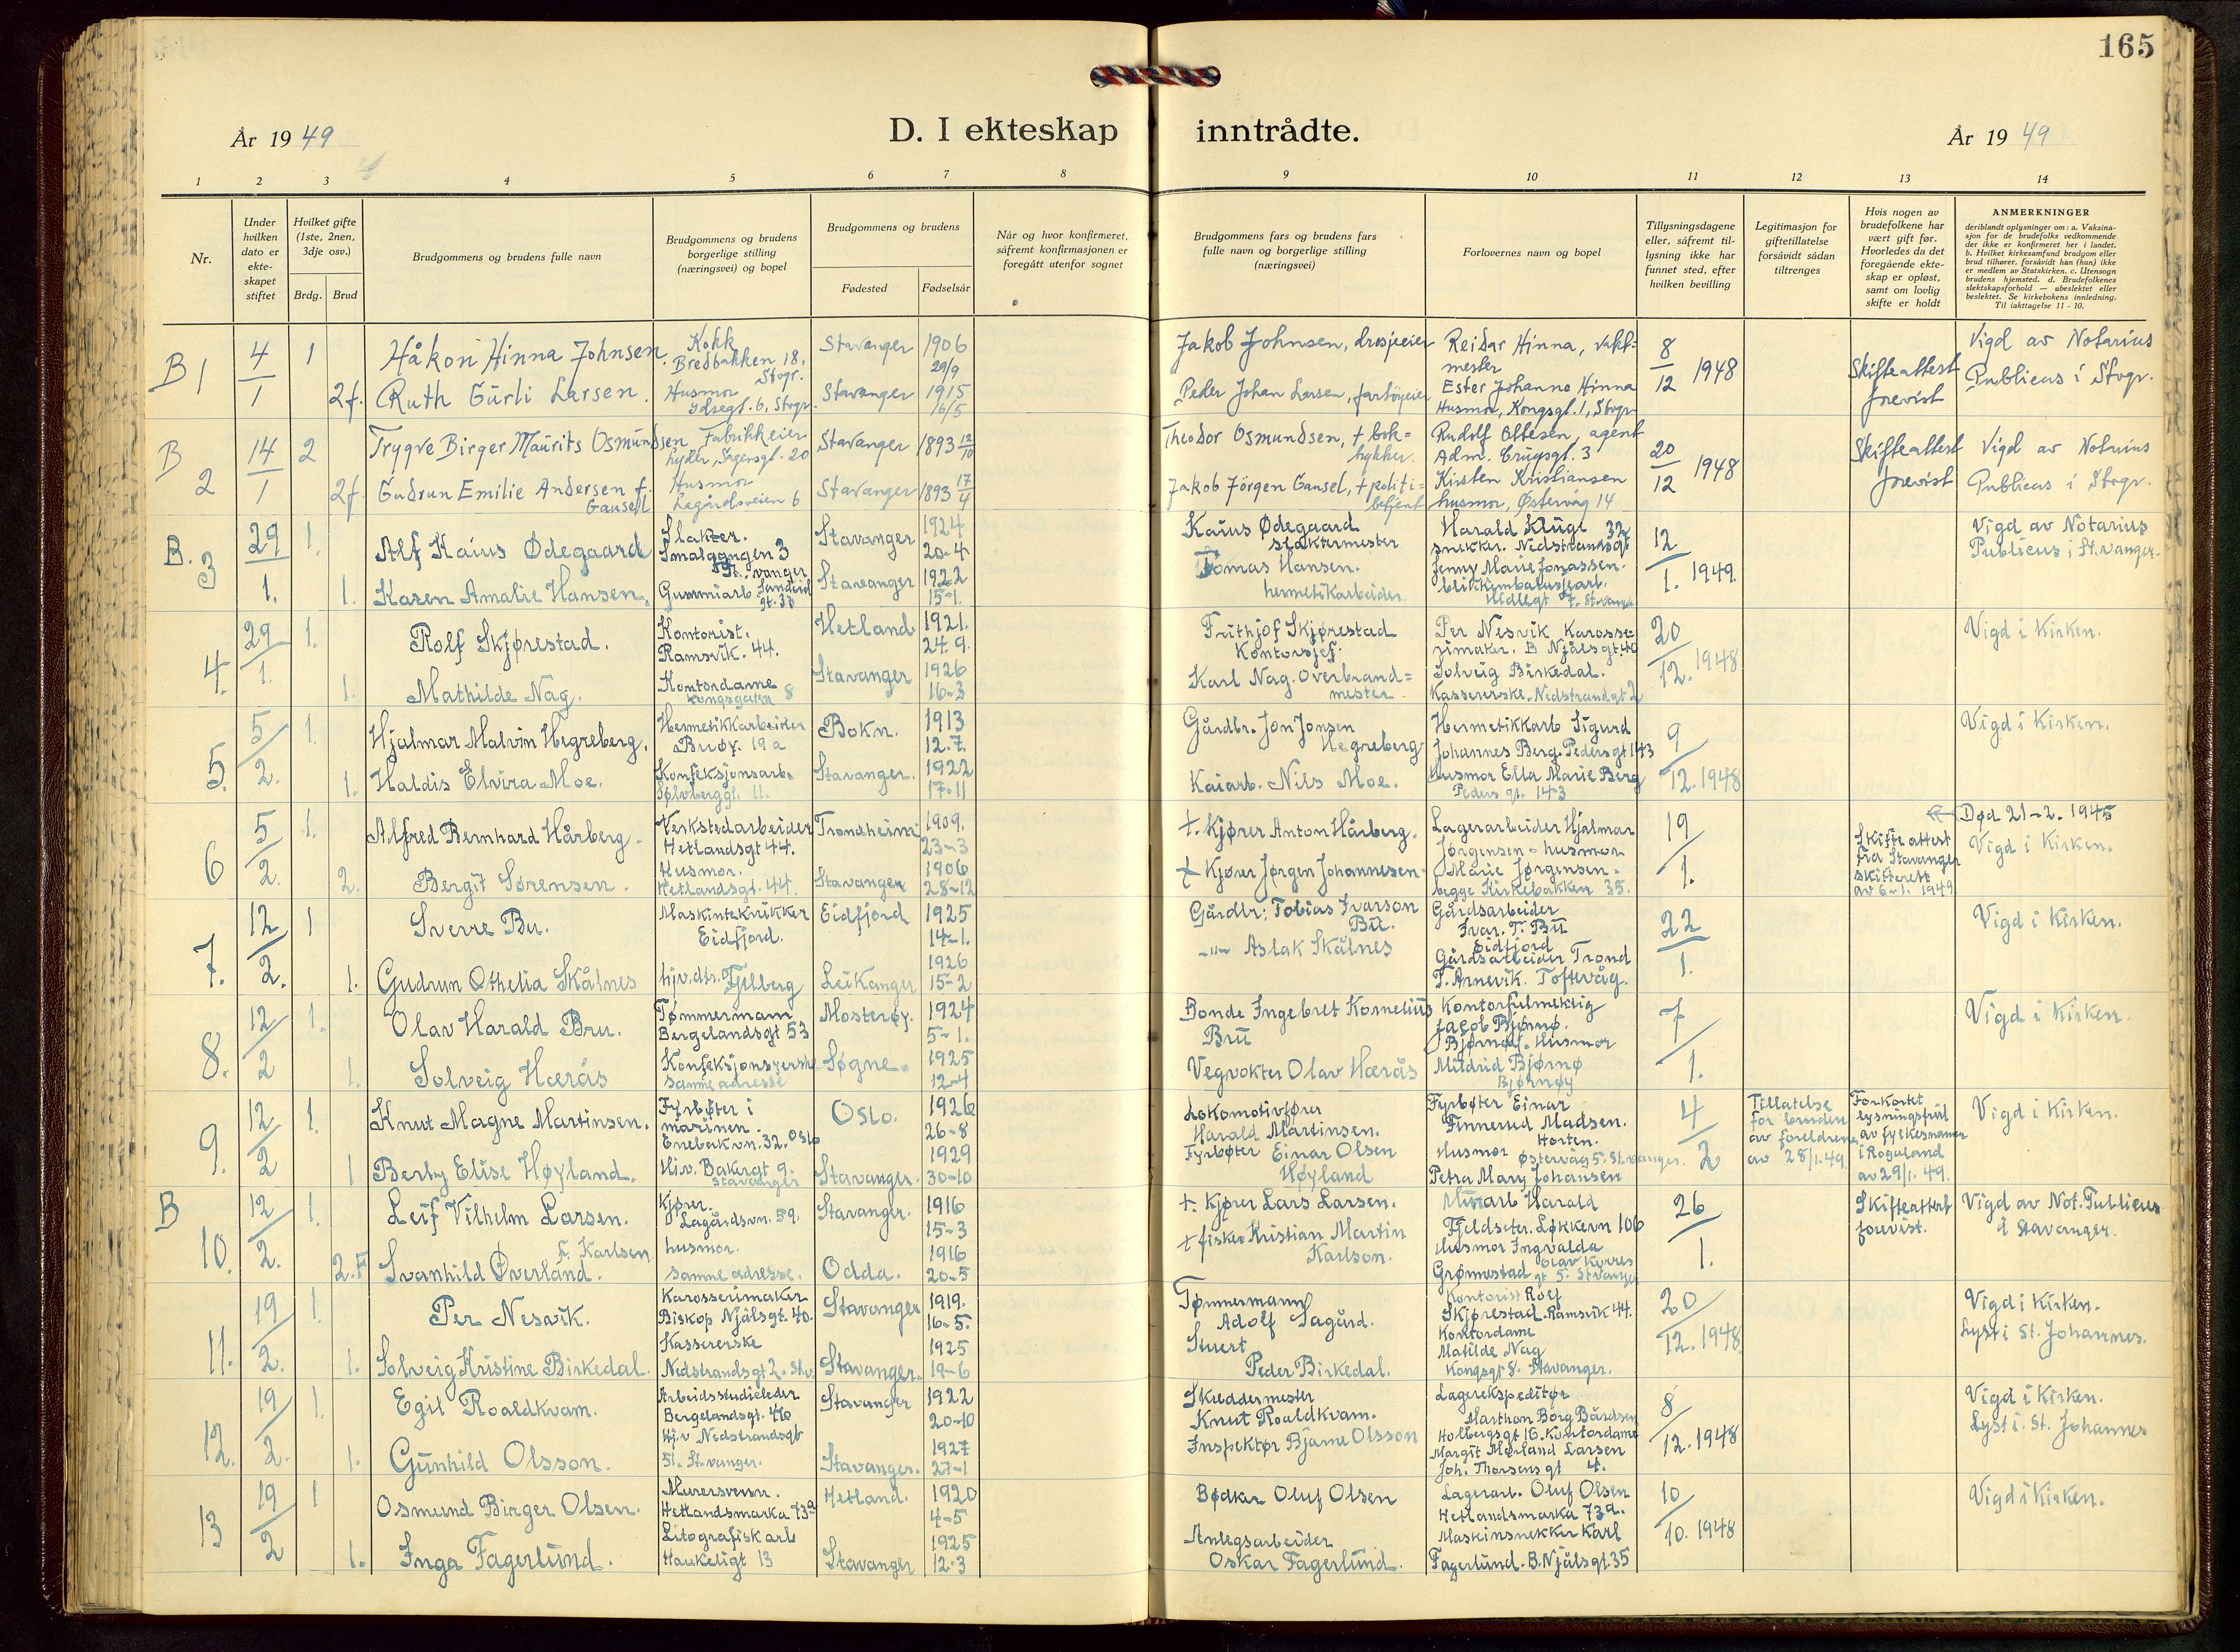 165
År 1949
D. I ekteskap inntrådte.
År 1949
1 2 3 4 5 6 7 8 9 10 11 12 13 14
Nr.
Under hvilken dato er ekteskapet stiftet
Hvilket gifte (1ste, 2nen, 3dje osv.)
Brdg. Brud
Brudgommens og brudens fulle navn
Brudgommens og brudens borgerlige stilling (næringsvei) og bopel
Brudgommens og brudens
Fødested Fødselsår
Når og hvor konfirmeret, såfremt konfirmasjonen er foregått utenfor sognet
Brudgommens fars og brudens fars fulle navn og borgerlige stilling (næringsvei)
Forlovernes navn og bopel
Tillysningsdagene eller, såfremt tillysning ikke har funnet sted, efter hvilken bevilling
Legitimasjon for giftetillatelse forsåvidt sådan tiltrenges
Hvis nogen av brudefolkene har vært gift før. Hvorledes da det foregående ekteskap er opløst, samt om lovlig skifte er holdt
ANMERKNINGER
deriblandt oplysninger om: a. Vaksinasjon for de brudefolks vedkommende der ikke er konfirmeret her i landet. b. Hvilket kirkesamfund brudgom eller brud tilhører, forsåvidt han (hun) ikke er medlem av Statskirken. c. Utensogn brudens hjemsted. d. Brudefolkenes slektskapsforhold — ubeslektet eller beslektet. Se kirkebokens innledning. Til iakttagelse 11 - 10.
B 1 4/1 1 Håkon Hinna Johnsen. Kokk Bredbakken 18, Stvgr. Stavanger 1906 29/9 Jakob Johnsen, drosjeeier Reidar Hinna, vaktmester 8/12 1948 Skifteattest forevist Vigd av Notarius Publicus i Stvgr.
2f. Ruth Gürli Larsen. Husmor Ydsegt. 6, Stvgr. Stavanger 1915 16/5 Peder Johan Larsen, fartöyeier Ester Johanne Hinna Husmor, Kongsgt. 1, Stvgr.
B 2 14/1 2 Trygve Birger Maurits Osmundsen Fabrikkeier Sagensgt. 20 Stavanger 1893 12/10 Theodor Osmundsen, + boktrykker. Rudolf Ottesen, agent Adm. Crüysgt. 3 20/12 1948 Skifteattest forevist Vigd av Notarius Publicus i Stvgr.
2f. Gudrun Emilie Andersen f. Gausel Husmor Lagårdsveien 6 Stavanger 1893 17/4 Jakob Jörgen Gausel, + politibetjent Kirsten Kristiansen husmor, Østervåg 14
B. 3 29/1. 1. Alf Kaius Ødegaard Slakter. Smalgangen 3 St.vanger Stavanger 1924 20-4 Kaius Ødegaard slaktermester Harald Kluge snekker. Nedstrandsgt 32 12/1. 1949. Vigd av Notarius Publicus i St.vanger.
1. Karen Amalie Hansen. Gummiarb. Sandeid gt. Stavanger 1922 15-1. Tomas Hansen. hermetikarbeider. Jenny Marie Jonassen.
4. 29/1. 1. Rolf Skjørestad. Kontorist. Ramsvik. 44. Hetland 1921. 24.9. Frithjof Skjørestad Kontorsjef. Per Nesvik Karosserimaker. B Njålsgt. 40 20/12. 1948 Vigd i Kirken.
1. Mathilde Nag. Kontordame Kongsgaten 8 Stavanger 1926 16-3 Karl Nag. Overbrandmester. Solveig Birkedal. Kassererske. Nedstrandgt 2
5. 5/2. 1. Hjalmar Malvin Hegreberg. Hermetikkarbeider Buøy. 19a Bokn. 1913 12.7. Gårdbr. Jon Jonsen Hegreberg Hermetikkarb Sigurd Johannes Berg. Pedersgt 143 9/12. 1948 Vigd i Kirken.
1. Haldis Elvira Moe. Konfeksjonsarb. Sølvberggt. 11. Stavanger. 1922 17-11 Kaiarb. Nils Moe. Husmor Ella Marie Berg Peders gt. 143
6 5/2. 1. Alfred Bernhard Hårberg. Verkstedarbeider Hetlandsgt 44. Trondheim 1909. 23-3 +. Kjører Anton Hårberg. Lagerarbeider Hjalmar Jørgensen - husmor 19/1. Skifteattest fra Stavanger skifterett av 6-1. 1949 Død 21-2. 1945 Vigd i Kirken.
2. Bergit Sørensen. Husmor. Hetlandsgt. 44. Stavanger 1906 28-12 + Kjører Jørgen Johannesen Marie Jørgensen. begge Kirkebakken 35.
7. 12/2. 1 Sverre Bu. Maskintekniker Eidfjord. Eidfjord 1925 14-1. Gårdbr: Tobias Ivarson Bu. Gårdsarbeider Ivar. T. Bu Eidfjord 22/1. Vigd i Kirken.
1. Gudrun Othelia Skålnes hjv.dtr. Fjelberg Leikanger 1926 15-2 -"- Aslak Skålnes Gårdsarbeider Trond T. Arnevik. Toftevåg.
8. 12/2 1. Olav Harald Bru. Tømmermann Bergelandsgt 53 Mosterøy. 1924 5-1. Bonde Ingebret Kornelius Bru Kontorfulmektig Jacob Bjørnø. Bjørnøy. Husmor 7/1. Vigd i Kirken.
1. Solveig Hærås Konfeksjonsyerske samme adresse Søgne. 1925 12-4 Vegvokter Olav Hærås Mildrid Bjørnø Bjørnøy
9. 12/2 1. Knut Magne Martinsen. Fyrbøter i marinen. Enebakvn. 32. Oslo Oslo. 1926 26-8 Lokomotivfører Harald Martinsen. Fyrbøter Einar Finnerud Madsen. Horten. 4/2 Tillatelse for bruden av foreldrene av 28/1. 49. Forkortet lysningsfrist av fylkesmannen i Rogaland av 29/1. 49. Vigd i Kirken.
1 Berly Elise Høyland. Hj.v. Bakergt 9. Stavanger Stavanger. 1929 30-10 Fyrbøter Einar Olsen Høyland Husmor Østervåg 5. St.vanger. Petra Mary Johansen
B 10. 12/2. 1. Leif Vilhelm Larsen. Kjører. Lagårdsvn. 59. Stavanger. 1916 15-3 +. Kjører Lars Larsen. Murarb Harald Fjeldseter. Løkkevn 106 26/1. Skifteattest forevist. Vigd av Not. Publicus i Stavanger.
2.F Svanhild Øverland. f. Karlsen husmor. samme adresse. Odda. 1916 20-5 + fisker Kristian Martin Karlson. Husmor Ingvalda Grønnestad Olav Kyrres gt 5. Stvanger
11. 19/2. 1. Per Nesvik. Karosserimaker Biskop Njålsgt. 40. Stavanger 1919. 16-5. Tømmermann Adolf Sagård. Kontorist Rolf Skjørestad. Ramsvik 44. 20/12. 1948 Vigd i Kirken. Lyst i St. Johannes.
1. Solveig Kristine Birkedal. Kassererske Nedstrandsgt 2. Stv. Stavanger. 1925 19-6 Stuert Peder Birkedal. Kontordame Matilde Nag Kongsgt 8. Stavanger.
12. 19/2. 1. Egil Roaldkvam. Arbeidsstudieleder Bergelandsgt. Stavanger 1922 20-10 Skreddermester Knut Roaldkvam. Lagerekspeditør Marthon Borg Bårdsen Holbergsgt 16. Kontordame 8/12. 1948 Vigd i Kirken. Lyst i. St. Johannes
1. Gunhild Olsson. Hj.v Nedstrandsgt 51. St.vanger. Stavanger. 1927 27-1 Inspektør Bjarne Olsson Margit Mørland Larsen Joh. Thorsensgt 4.
13 19/2 1 Osmund Birger Olsen. Murersvenn. Hetlandsmarka 73a Hetland. 1920 4-5 Bødker Oluf Olsen Lagerarb. Oluf Olsen Hetlandsmarka 73a. 10/10. 1948 Vigd i Kirken.
1. Inga Fagerlund. Litografisk arb Haukeligt 13 Stavanger 1925 12-3 Anlegsarbeider Oskar Fagerlund. Maskinsnekker Karl Fagerlund. B. Njålsgt. 35